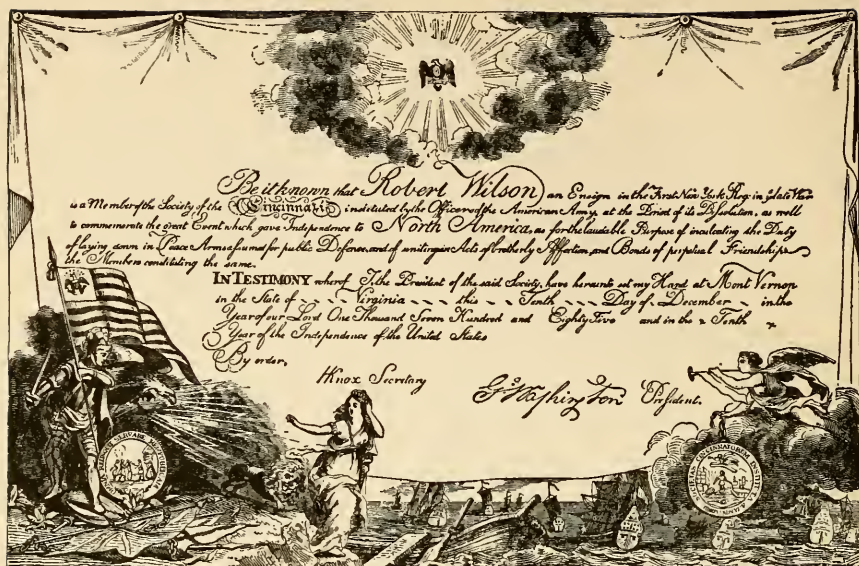 Be it known that Robert Wilson, an Ensign in the First New York Reg: in ye late War
is a Member of the Society of the Cincinnati, instituted by the Officers of the American Army, at the Period of its Dissolution, as well
to commemorate the great Event which gave Independence to North America, as for the laudable Purpose of inculcating the Duty
of laying down in Peace Arms assumed for public Defence, and of uniting in Acts of brotherly Affection, and Bonds of perpetual Friendship
the Members constituting the same.
IN TESTIMONY whereof I, the President of the said Society, have hereunto set my Hand at Mont Vernon
in the State of Virginia this Tenth Day of December in the
Year of our Lord One Thousand Seven Hundred and Eighty Five and in the Tenth
Year of the Independence of the United States
By order,
HKnox Secretary
Go Washington President.
SERVARE REMPUBLICAM
SOCIETAS CINCINNATORUM INSTITUTA